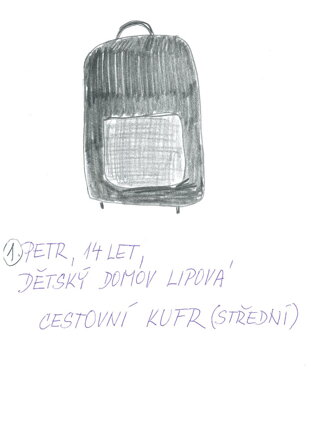 1. PETR, 14 LET,
DĚTSKÝ DOMOV LIPOVÁ
CESTOVNÍ KUFR (STŘEDNÍ)